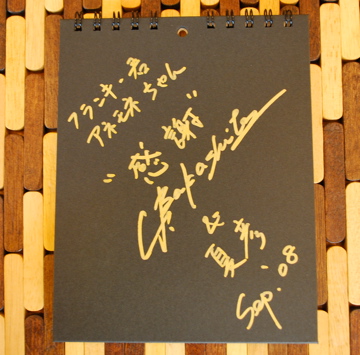 フランキー君
アネモネちゃん
"感謝"
Takashi
&
夏彦
Sep. '08